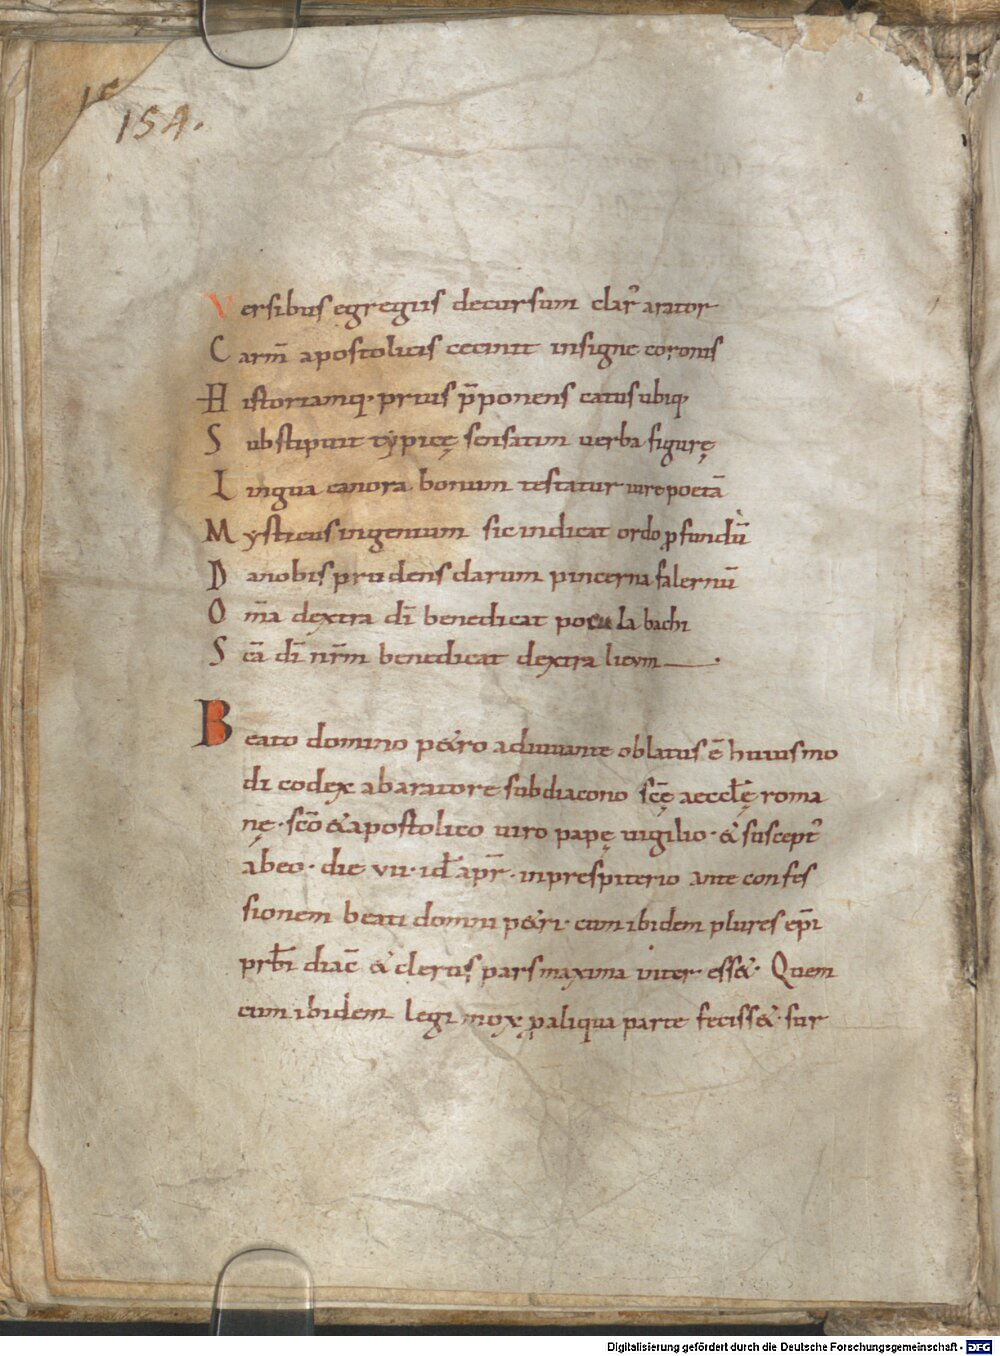 15
154.
Versibus egregiis decursum clar᾽ arator
Carm̄ apostolicis cecinit insigne coronis
Historiamq· prius p̄ponens catus ubiq·
Substipuit typicę sensatim uerba figurę
Lingua canora bonum testatur iure poetā
Mysticus ingenium sic indicat ordo ꝓfundū
Da nobis prudens clarum pincerna falernū
Om̄a dextra dī benedicat pocula bachi
Scā dī nr̄m benedicat dextra lieum
Beato domino p&ro adiuuante oblatus ē huiusmo
di codex ab aratore subdiacono scę̄ aeccłę roma
nę· scō & apostolico uiro papę uigilio· & suscept᾽
ab eo· die vii· id̄ apr̄· in prespiterio ante confes
sionem beati domini p&ri· cum ibidem plures ep̄i
prb̄i diac̄ & clerus pars maxima inter ess&· Quem
cum ibidem legi mox ꝓ aliqua parte feciss&· sur
Digitalisierung gefördert durch die Deutsche Forschungsgemeinschaft - DFG